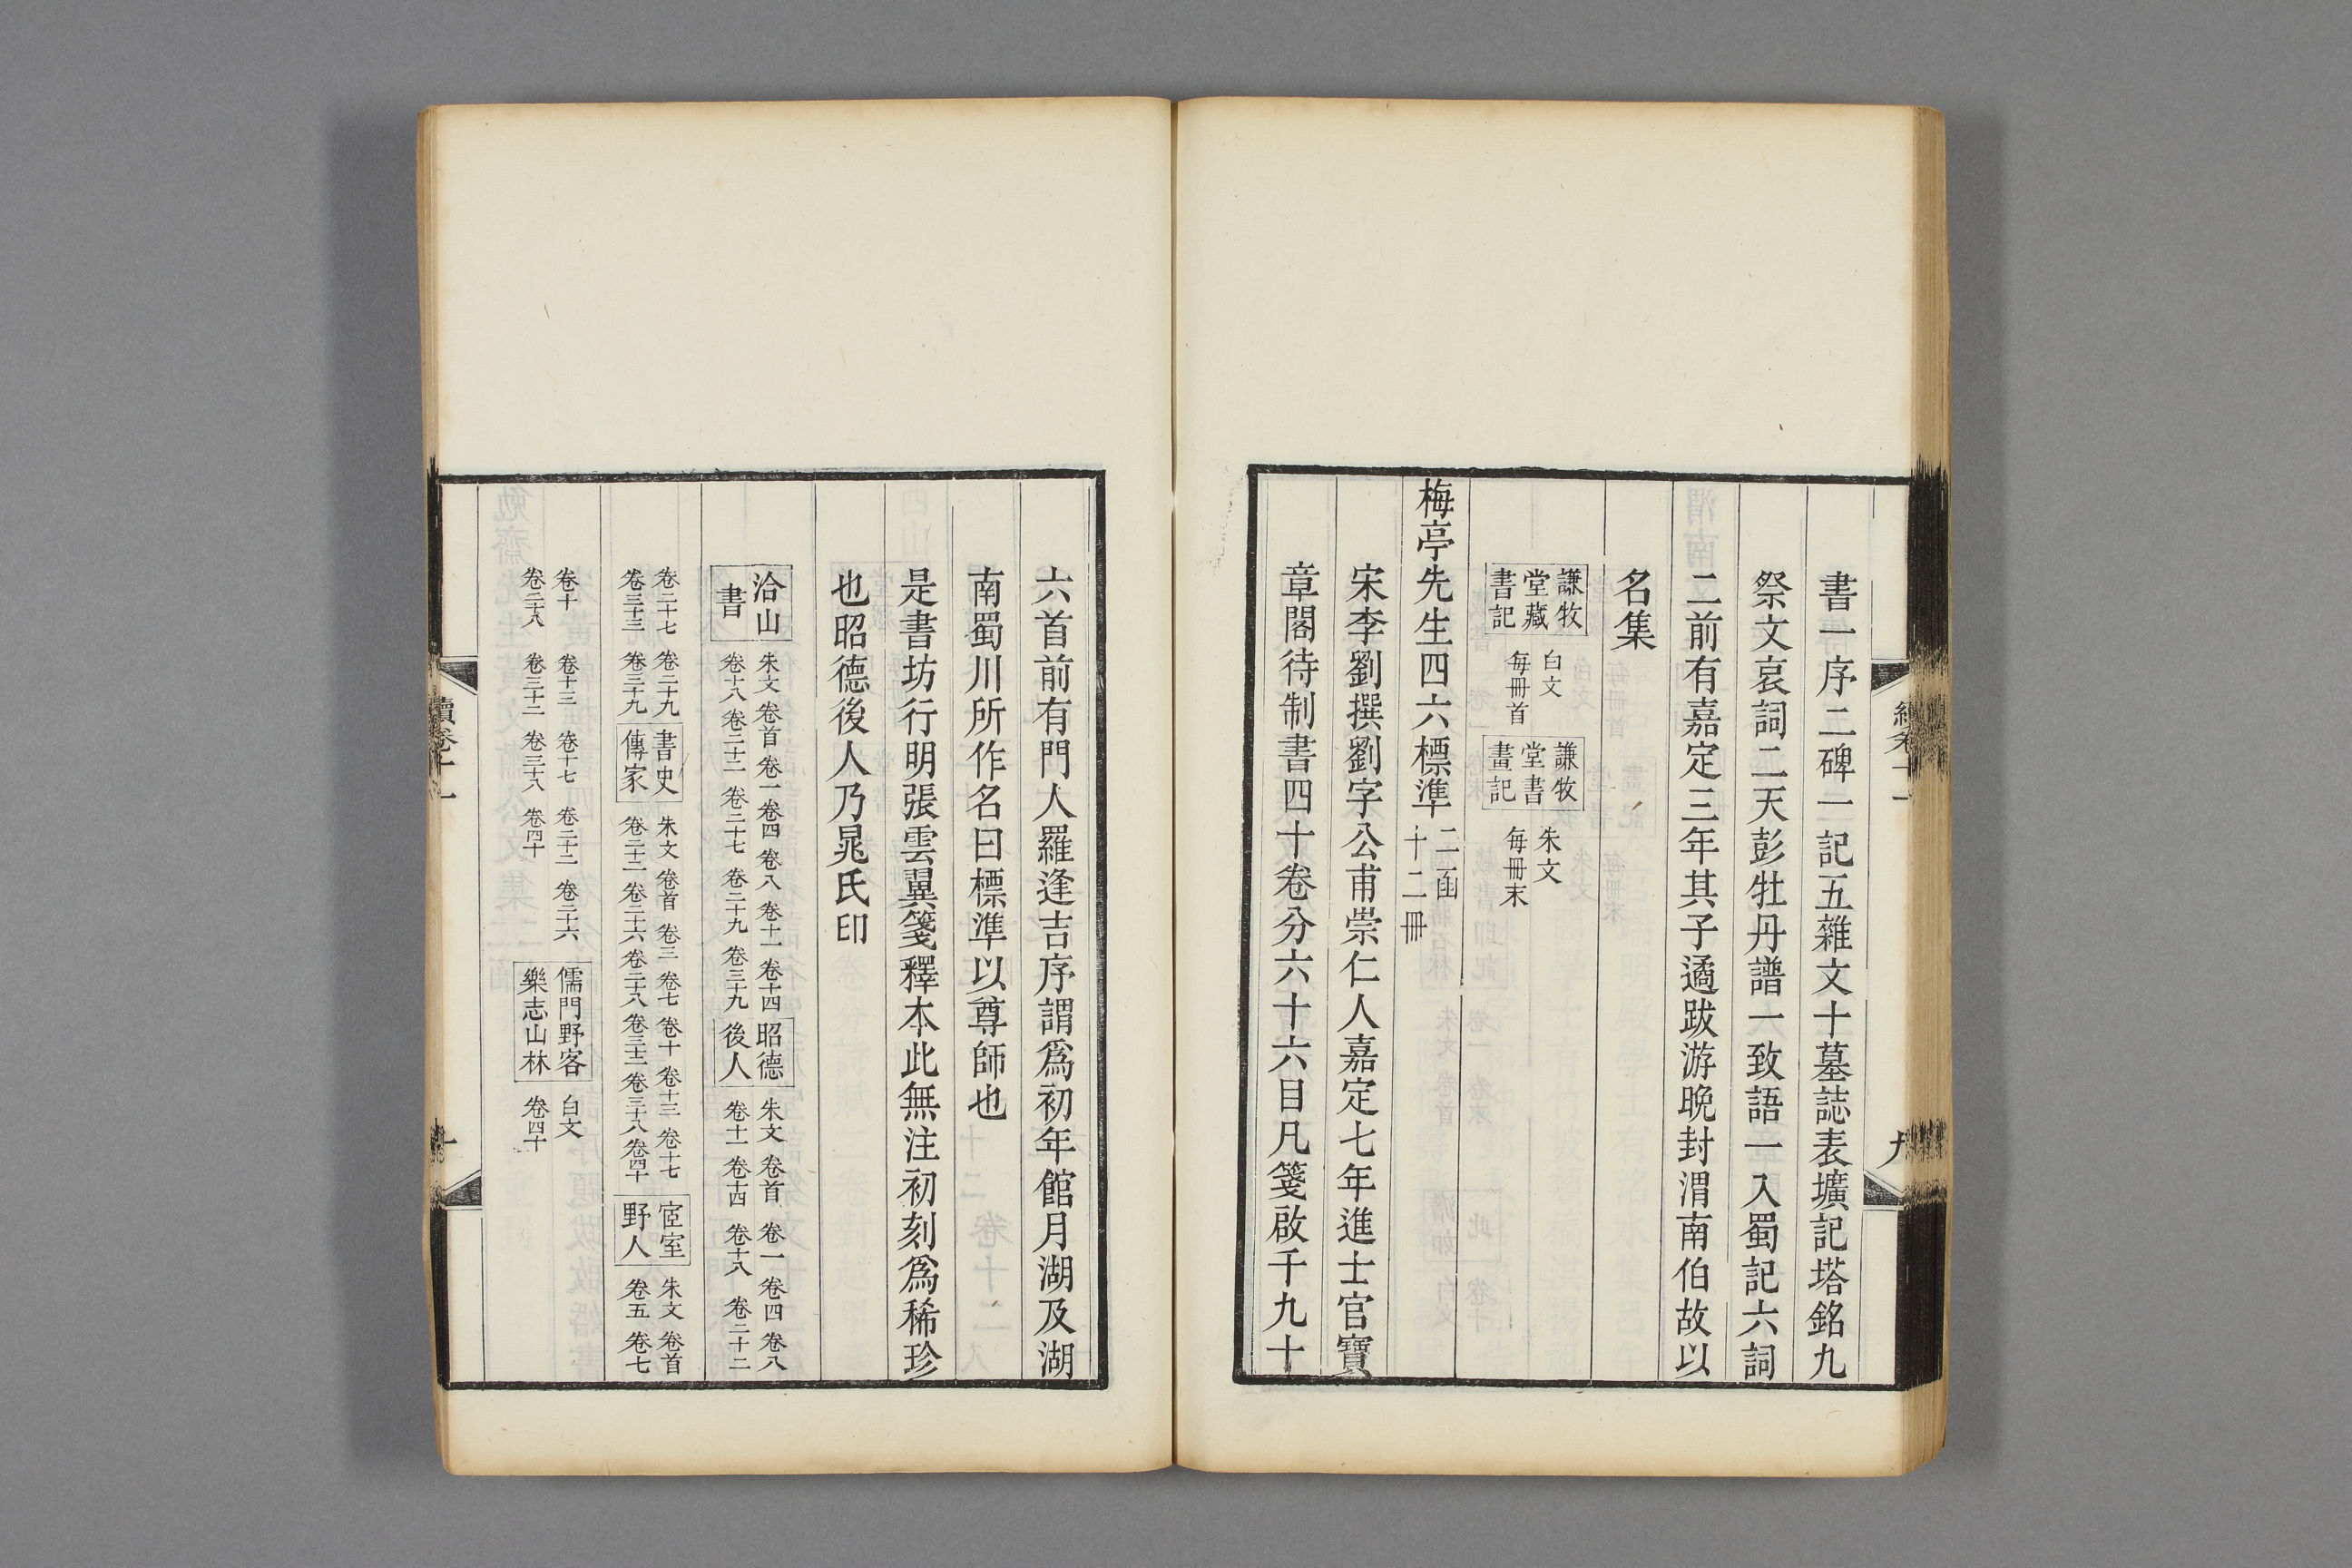 書一序二碑一記五雜文十墓誌表壙記塔銘九
祭文哀詞二天彭牡丹譜一致語一入蜀記六詞
二前有嘉定三年其子遹跋游晚封渭南伯故以
名集
謙牧
堂藏
書記
白文
每冊首
謙牧
堂書
畫記
朱文
每冊末
梅亭先生四六標準
二函
十二冊
宋李劉撰劉字公甫崇仁人嘉定七年進士官寶
章閣待制書四十卷分六十六目凡箋啟千九十
六首前有門人羅逢吉序謂爲初年館月湖及湖
南蜀川所作名曰標準以尊師也
是書坊行明張雲翼箋釋本此無注初刻爲稀珍
也昭德後人乃晁氏印
洽山
書
朱文 卷首 卷一 卷四 卷八 卷十一 卷十四
卷十八 卷二十二 卷二十七 卷二十九 卷三十九
昭德
後人
朱文 卷首 卷一 卷四 卷八
卷十一 卷十四 卷十八 卷二十二
卷二十七 卷二十九
卷三十三 卷三十九
書史
傳家
朱文 卷首 卷三 卷七 卷十 卷十三 卷十七
卷二十二 卷二十六 卷二十八 卷三十二 卷三十八 卷四十
宦室
野人
朱文 卷首
卷五 卷七
卷十 卷十三 卷十七 卷二十二 卷二十六
卷二十八 卷三十二 卷三十八 卷四十
儒門野客
樂志山林
白文
卷四十
續卷十一